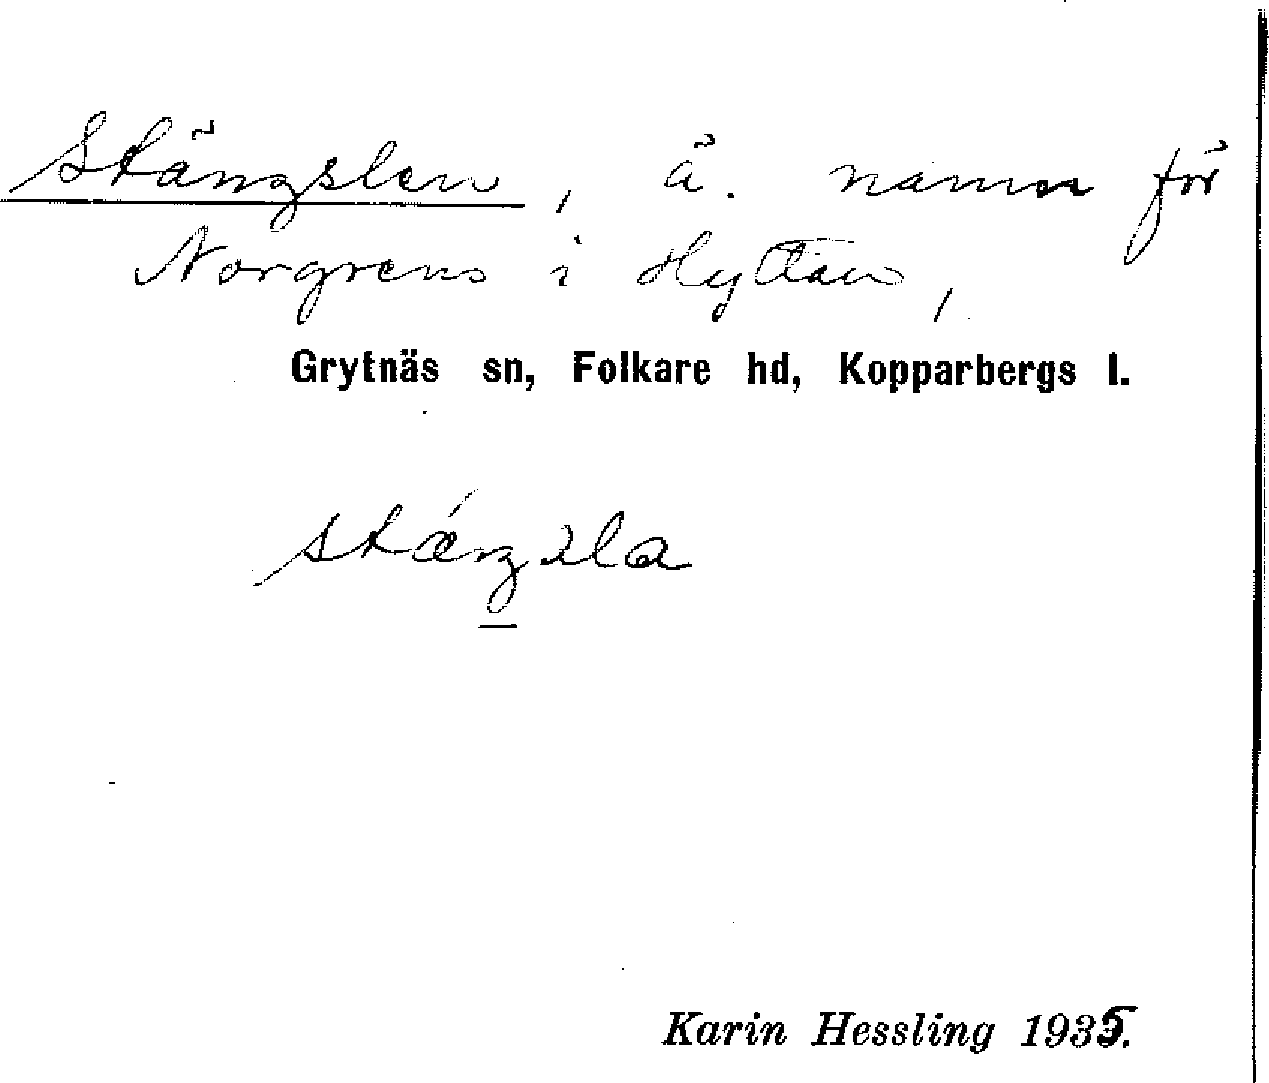 Stängslen, ä. namn för
Norgrens i Hyttan,
Grytnäs sn, Folkare hd, Kopparbergs l.
Karin Hessling 1935.